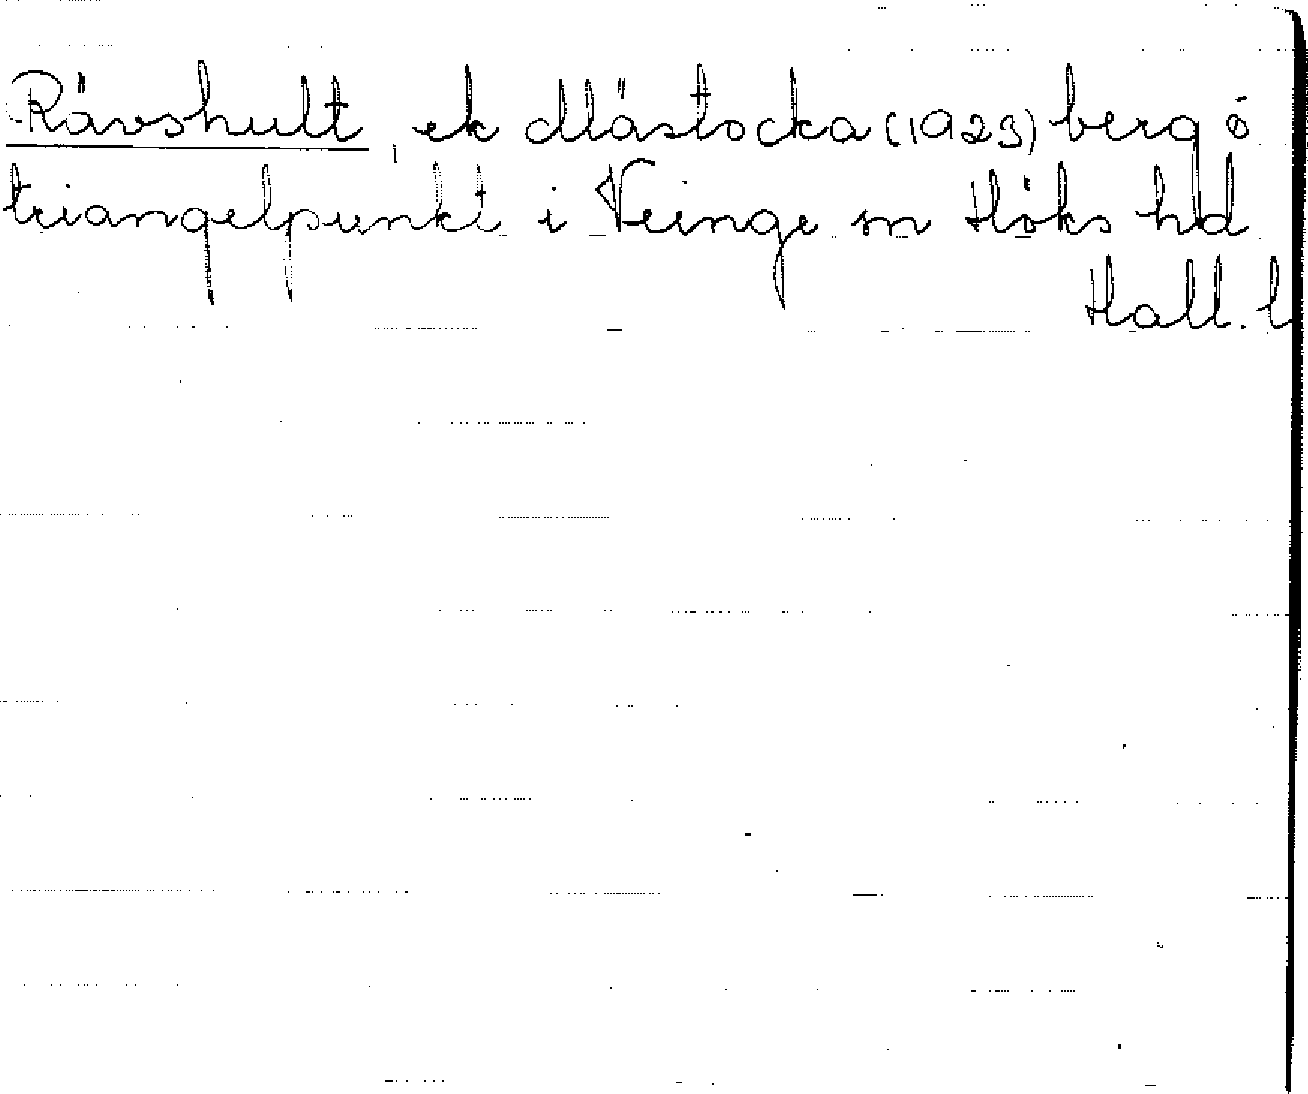 Rävshult, ek Mästocka (1923) berg ö
triangelpunkt i Veinge sn Höks hd
Hall. l